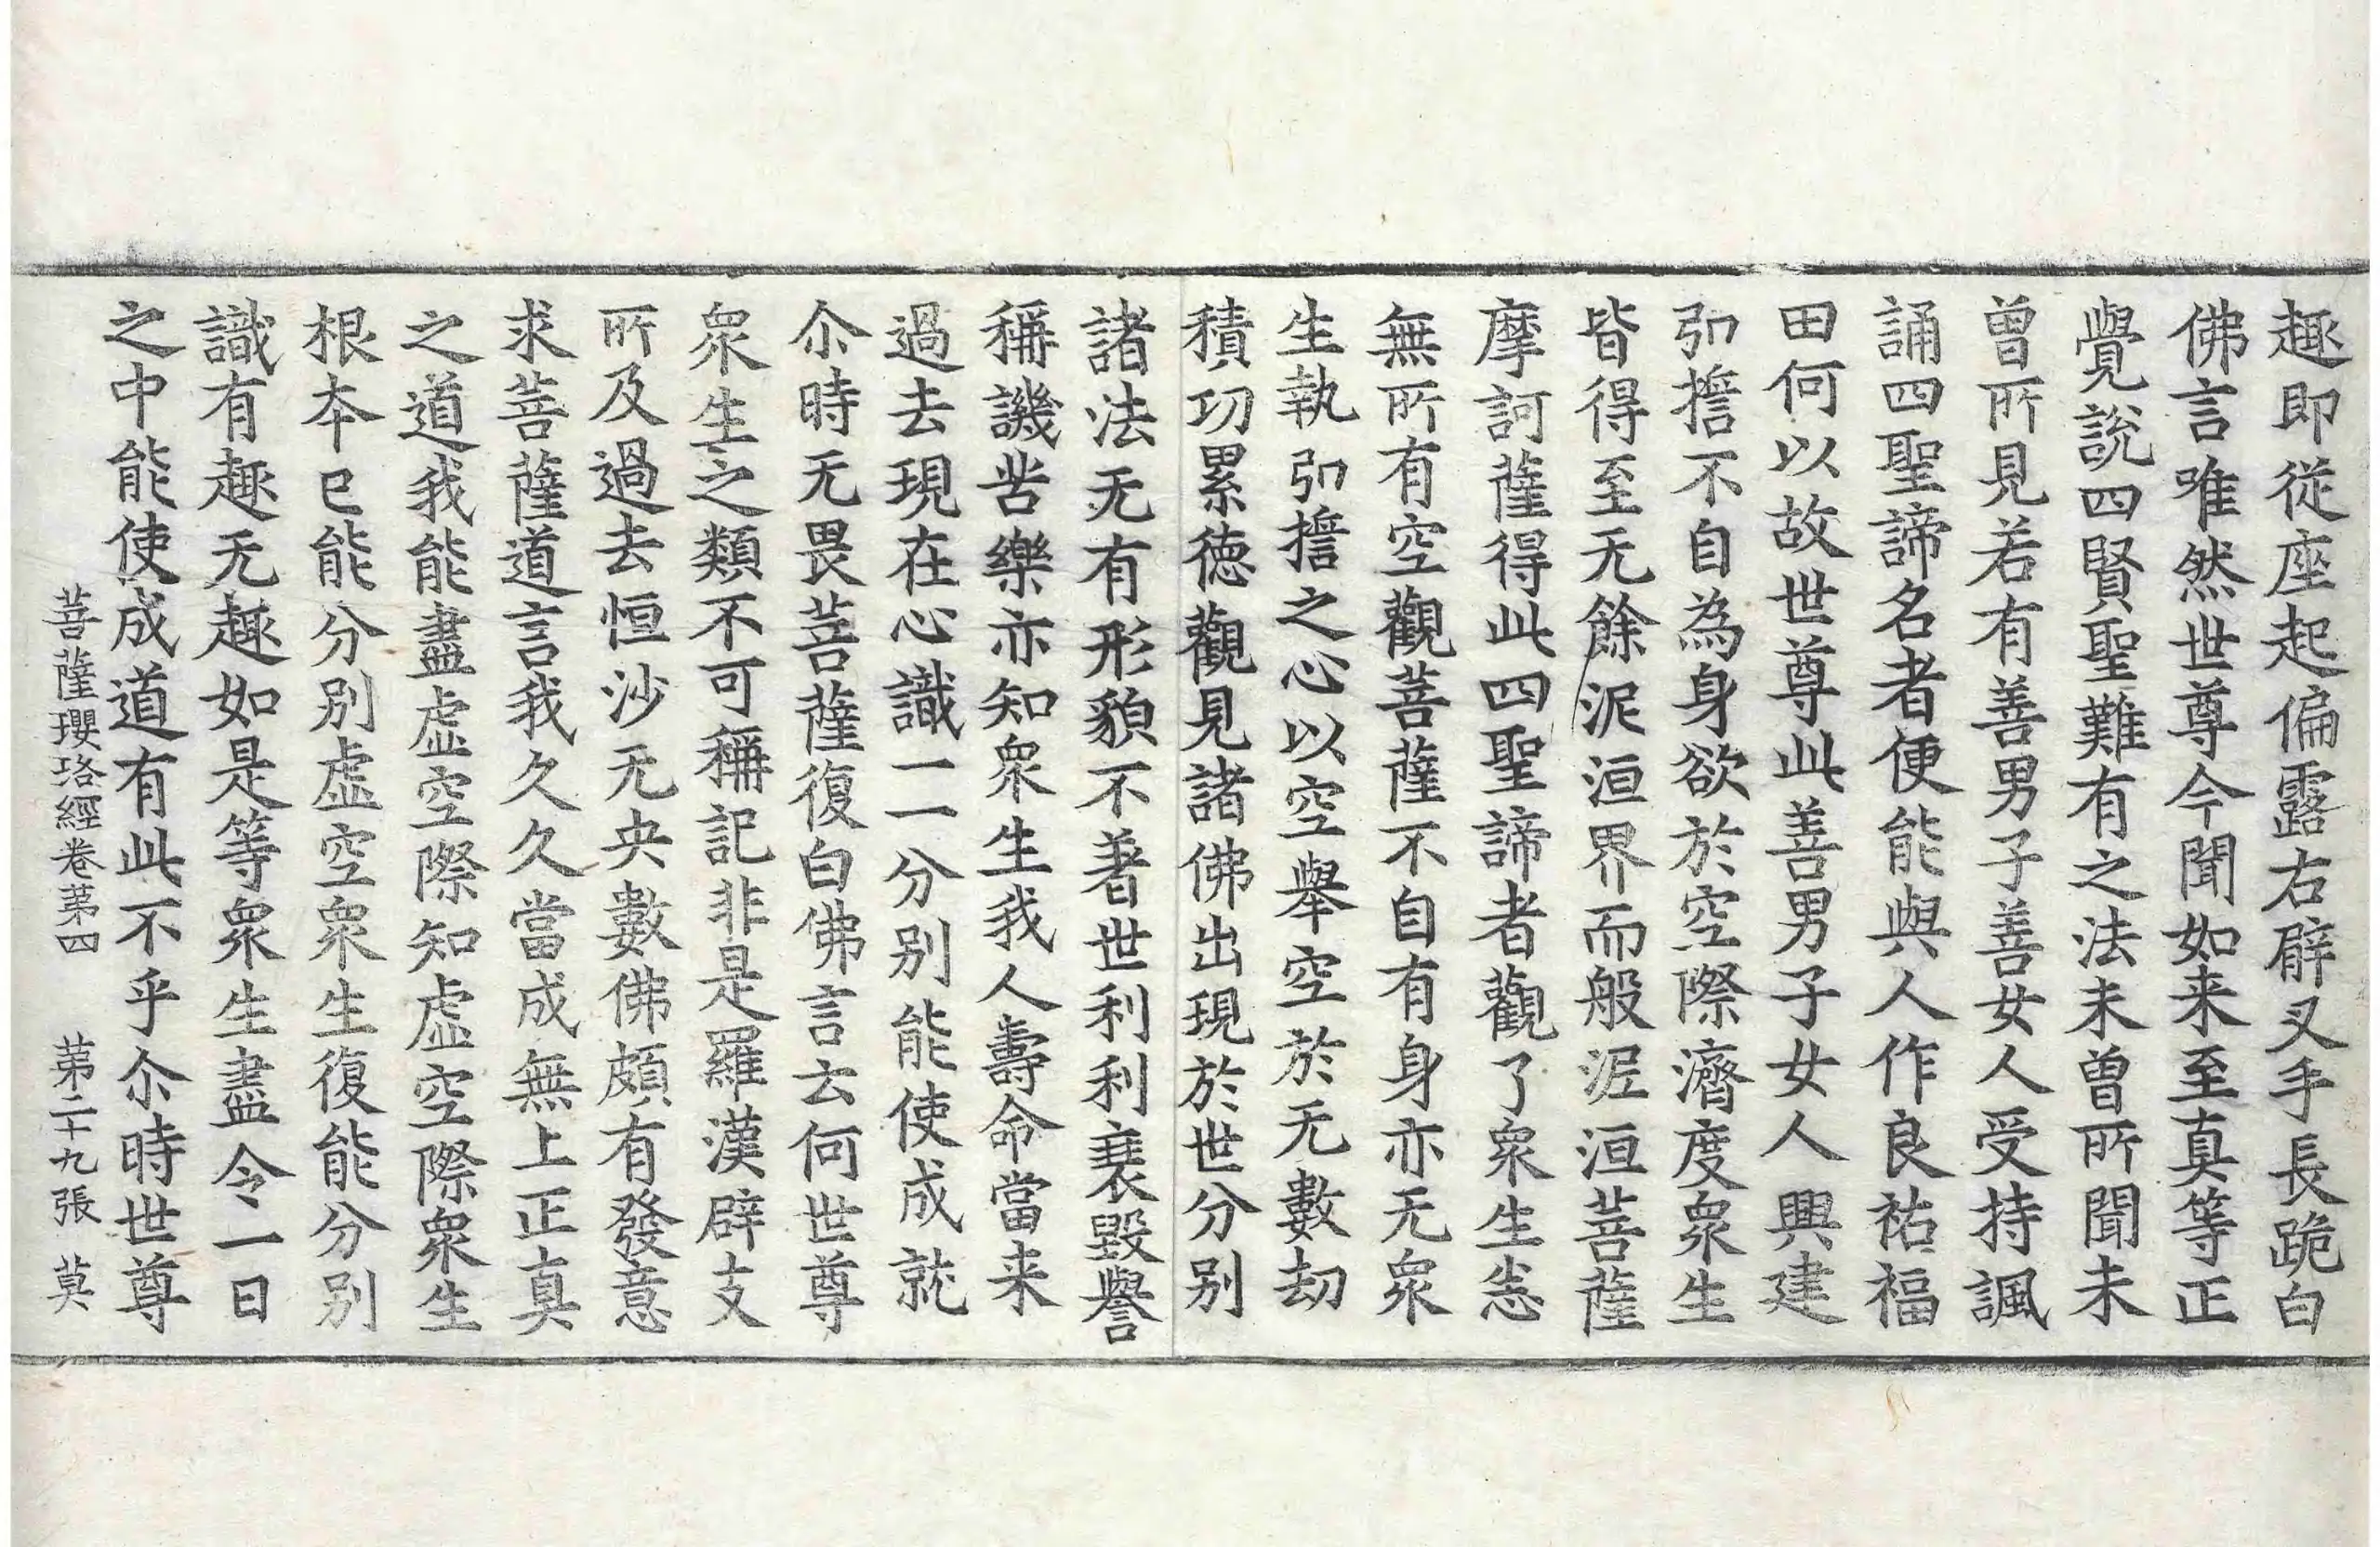 趣即從座起偏露右臂叉手長跪白
佛言唯然世尊今聞如来至真等正
覺說四賢聖難有之法未曾所聞未
曾所見若有善男子善女人受持諷
誦四聖諦名者便能與人作良祐福
田何以故世尊此善男子女人興建
弘誓不自為身欲於空際濟度衆生
皆得至无餘泥洹界而般泥洹菩薩
摩訶薩得此四聖諦者觀了衆生悉
無所有空觀菩薩不自有身亦无衆
生執弘誓之心以空舉空於无數劫
積功累德觀見諸佛出現於世分別
諸法无有形貌不著世利利衰毀譽
稱譏苦樂亦知衆生我人壽命當来
過去現在心識一一分別能使成就
尒時无畏菩薩復白佛言云何世尊
衆生之類不可稱記非是羅漢辟支
所及過去恒沙无央數佛頗有發意
求菩薩道言我久久當成無上正真
之道我能盡虛空際知虛空際衆生
根本已能分別虛空衆生復能分別
識有趣无趣如是等衆生盡令一日
之中能使成道有此不乎尒時世尊
菩薩瓔珞經卷第四　第二十九張　莫